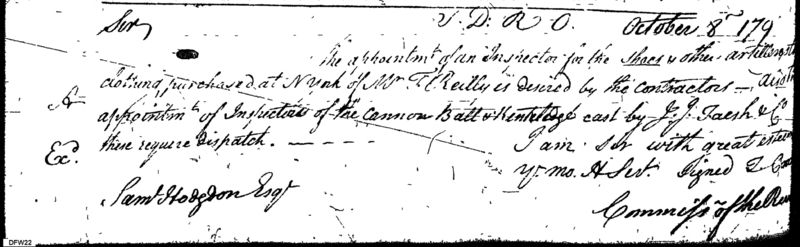 Sir, T. D. R. O. October 8th 179
The appointmt. of an Inspector for the Shoes & other articles of
cloathing, purchased at N York of Mr. T. Reilly is desired by the contractors — also the
A appointmt. of Inspectors of the Cannon Ball & Kentledge cast by J. J. Faesh & Co
Exd. these require dispatch. — — — — I am Sir with great esteem
Yr. mo. H Sert. Signed T Cox
Saml. Hodgdon Esqr
Commissr. of the Rev
DFW22